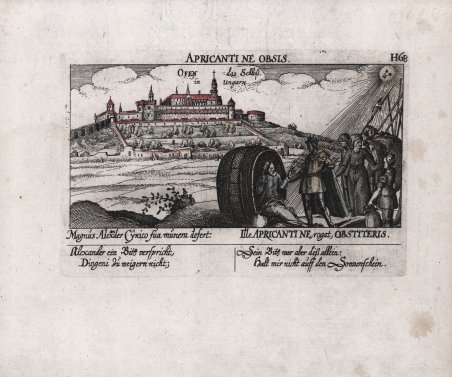 APRICANTI NE OBSIS.
H68
OFEN das Schloß
in Ungern
Magnus Alexander Cynico sua munera defert:
Ille APRICANTI NE, rogat, OBSTITERIS.
Alexander ein Bitt verspricht,
Diogeni zu weigern nicht;
Sein Bitt war aber diß allein:
Halt mir nicht auff den Sonnenschein.